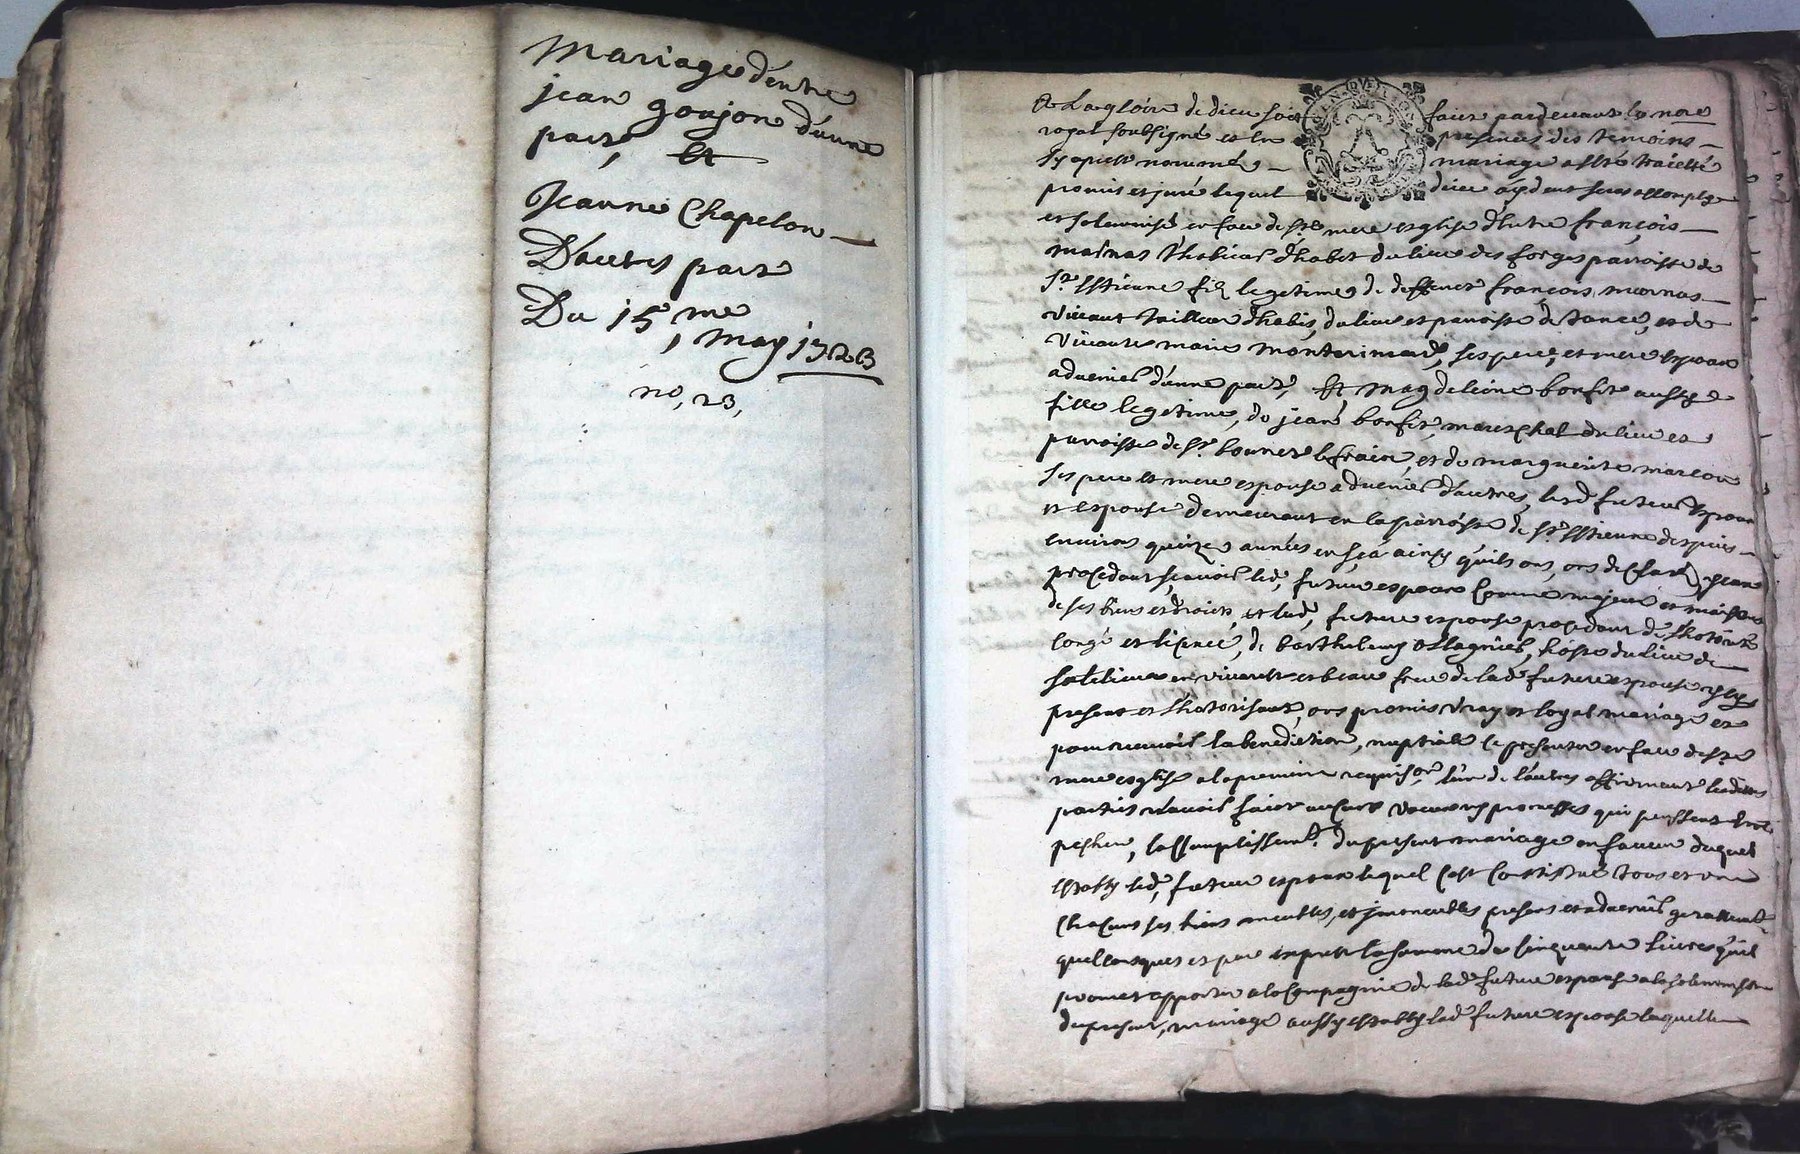 Mariage d'entre
jean goujon d'une
part, Et
Jeanne Chapelon
D'autres part
Du 15, me
may 1723
no, 23,
A La gloire de dieu soit faict pardevant le no.re
royal soubsigné et en presences des temoins
Sy apres nommés mariage a esté traicté
promis et juré lequel dieu aydent sera accomply
et solemnisé en face de s.te mere esglise Entre françois
marnas Thalieur d'habit du lieu des forges parroisse de
S.t Estienne fils legitime de deffunct françois marnas
vivant Tailleur d'habis, du lieu et parroisse de Tance, et de
vivante marie monterimard, ses pere, et mere Espoux
advenir d'une part, Et magdeleine bonfit aussy
fille legitime, de jean bonfit, mareschal du lieu et
parroisse de S.t bonnet le froid, et de marguerite marcon
ses pere et mere espouse advenir d'autres, lesd futeur Espoux
et espouse demeurant en la parroisse de S.t Estienne despuis
environ quinze années en sça ainsy qu'ils ont, ont declaré,
procedant sçavoir led, futeur espoux comme majeur et maistre
de ses biens et droicts, et lad, future espouse procedant de l'hotorité
congé et licence, de barthelemy ollagnier, hoste du lieu de
Satilieu en vivarest et beau frere de lad future espouse icy
present et l'hotorisant, ont promis vray et loyal mariage et
pour recevoir la benediction, nuptiale se presenter en face de s.te
mere esglise a la premiere requis.on l'un de l'autres affirmant lesdittes
parties n'avoir faict aucune voeux ny promesses qui puissent
pescher, l'accomplissem.t du present mariage en faveur duquel
estably led, futeur espoux lequel c'est constitué tous et un
chacuns ses biens meubles, et jmmeubles presens et advenir generallem.t
quelconques et par exprest la somme de cinquante livres qu'il
promet apporter a la compagnie de lad future espouse a la solemnisation
du present, mariage aussy establye lad future espouse laquelle